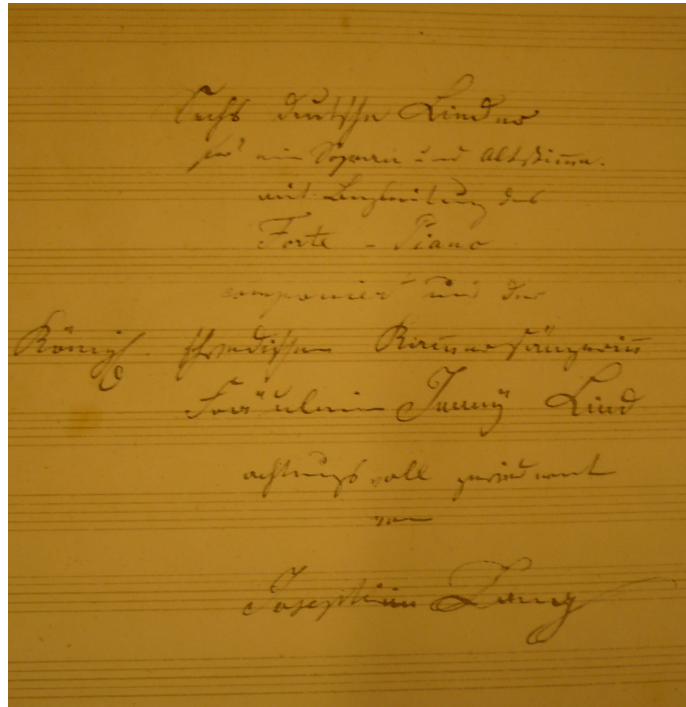 Sechs deutsche Lieder
für ein Sopran und Altstimme.
mit Begleitung des
Forte - Piano
componiert und der
Königl. schwedischen Kammersängerin
Fräulein Jenny Lind
achtungsvoll gewidmet
von
Josephine Lang